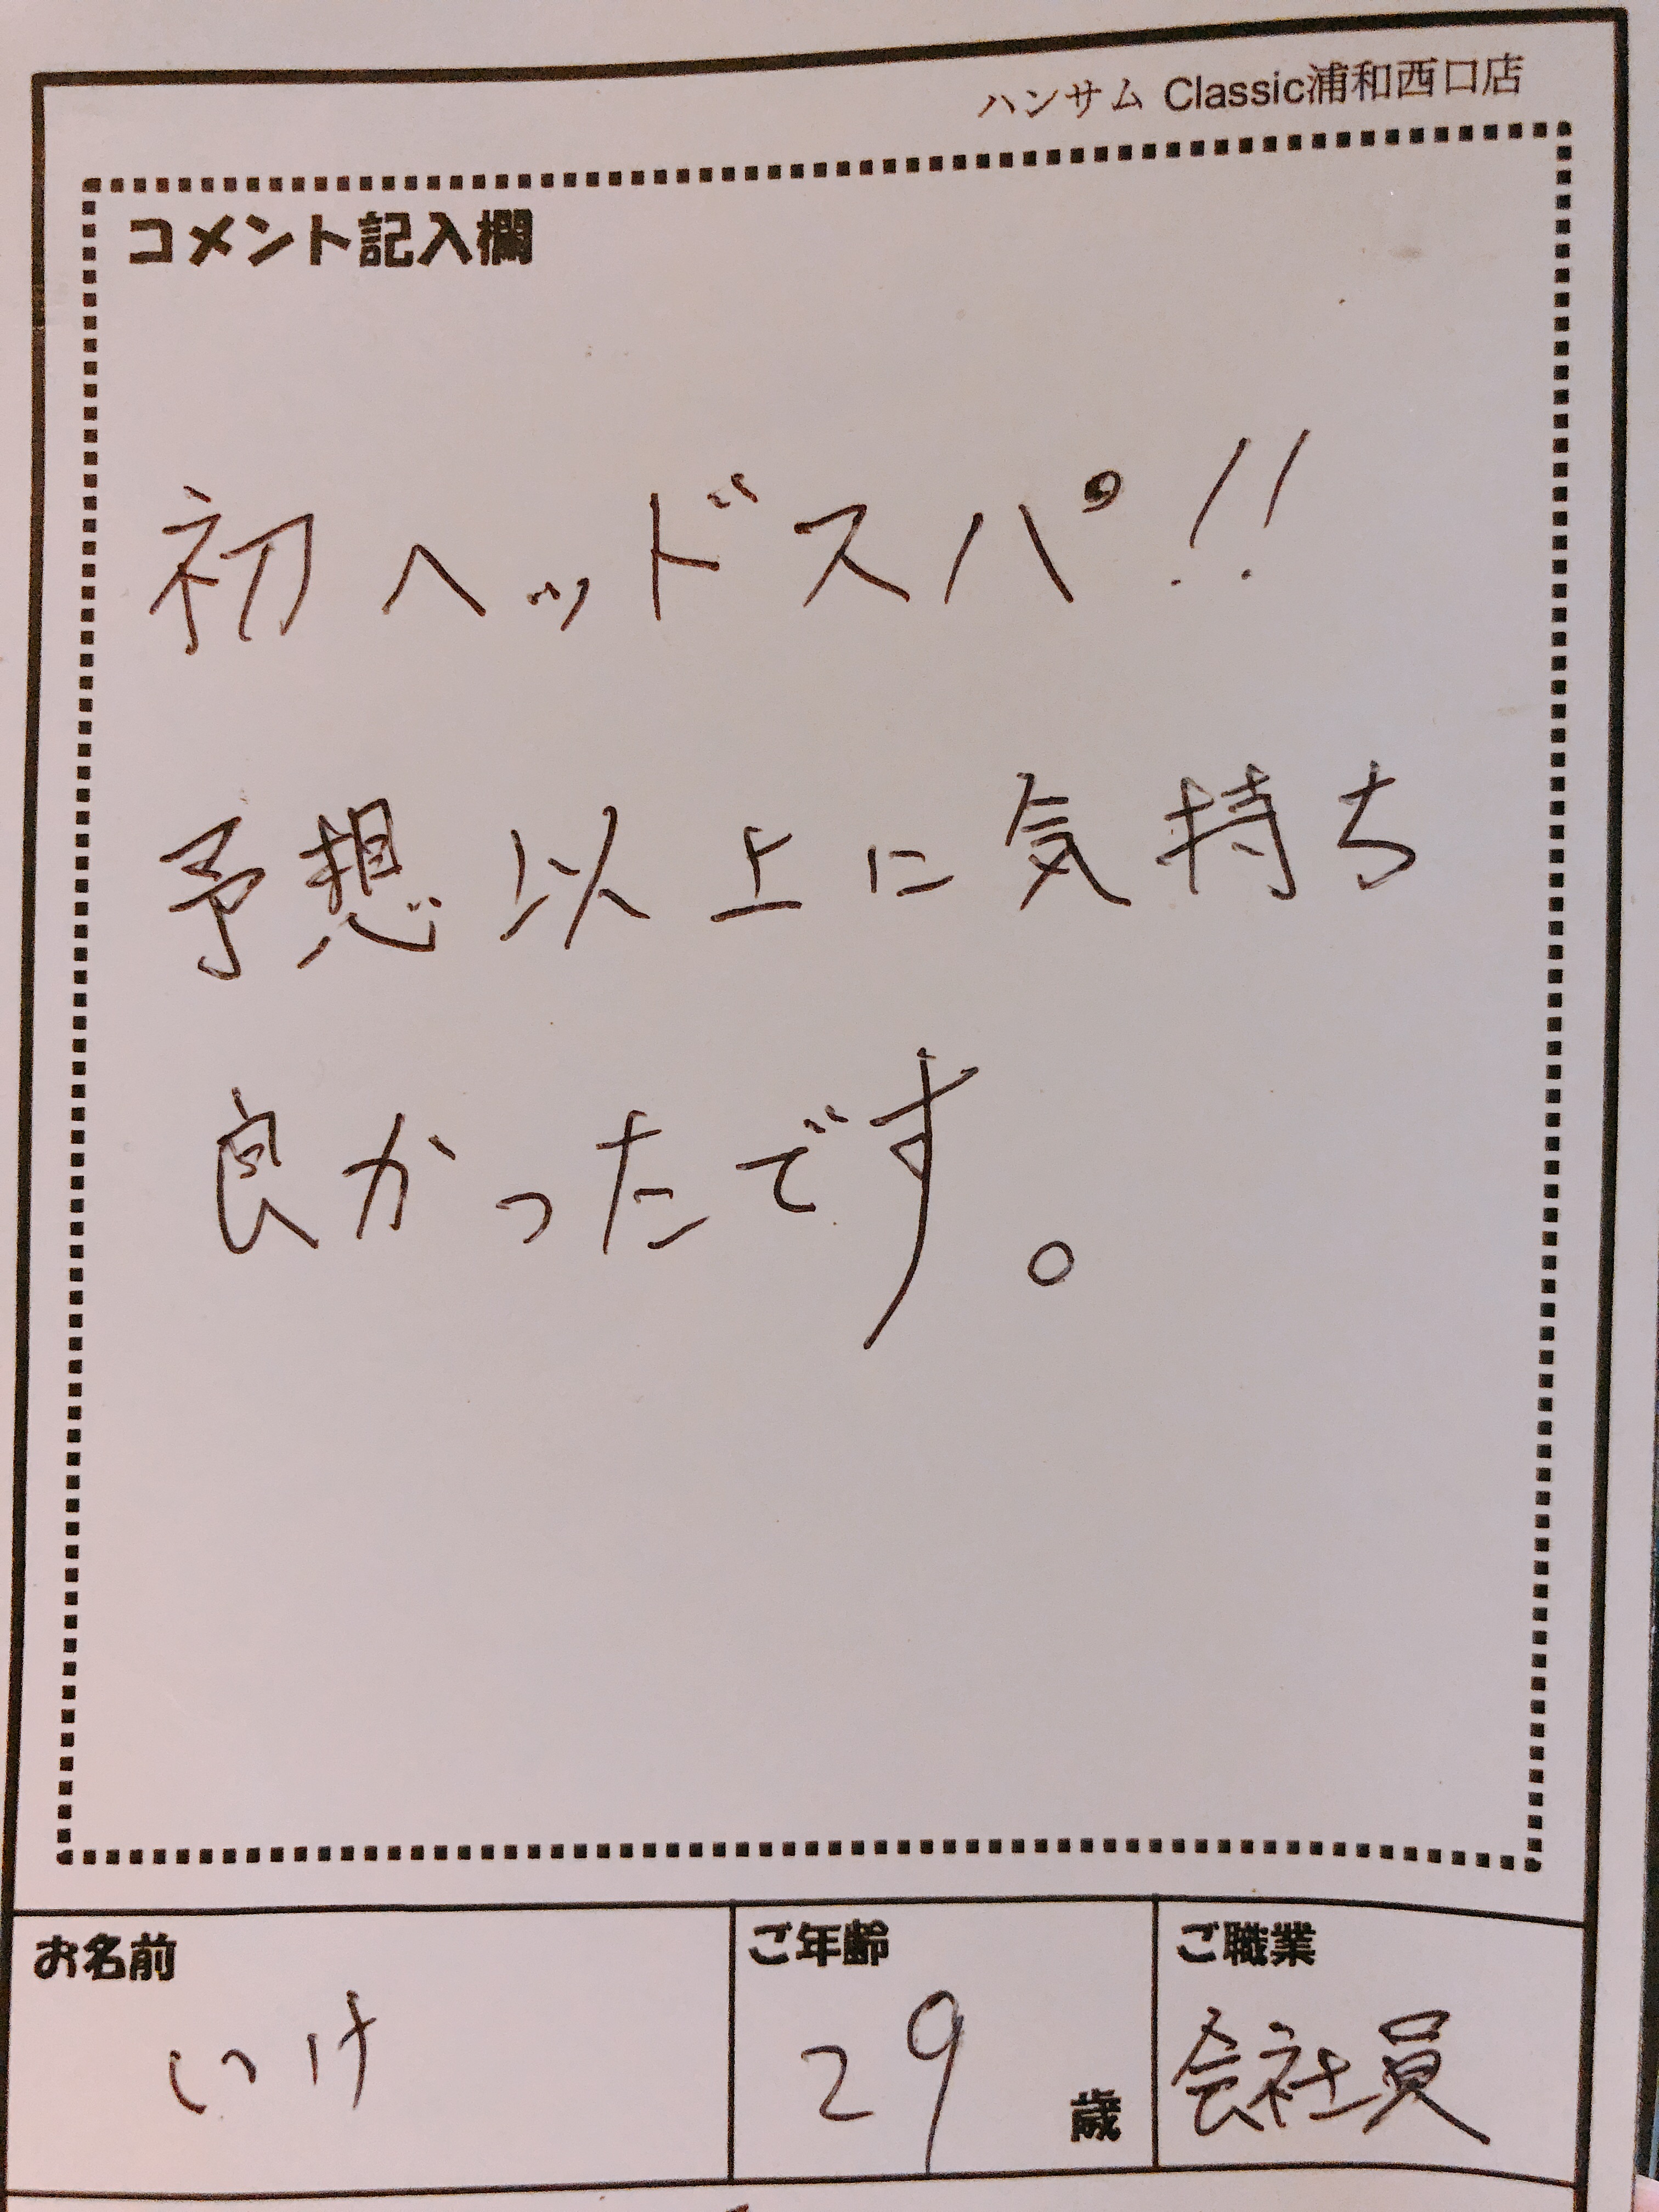 ハンサム Classic浦和西口店
コメント記入欄
初ヘッドスパ!!
予想以上に気持ち
良かったです。
お名前
いけ
ご年齢
29 歳
ご職業
会社員